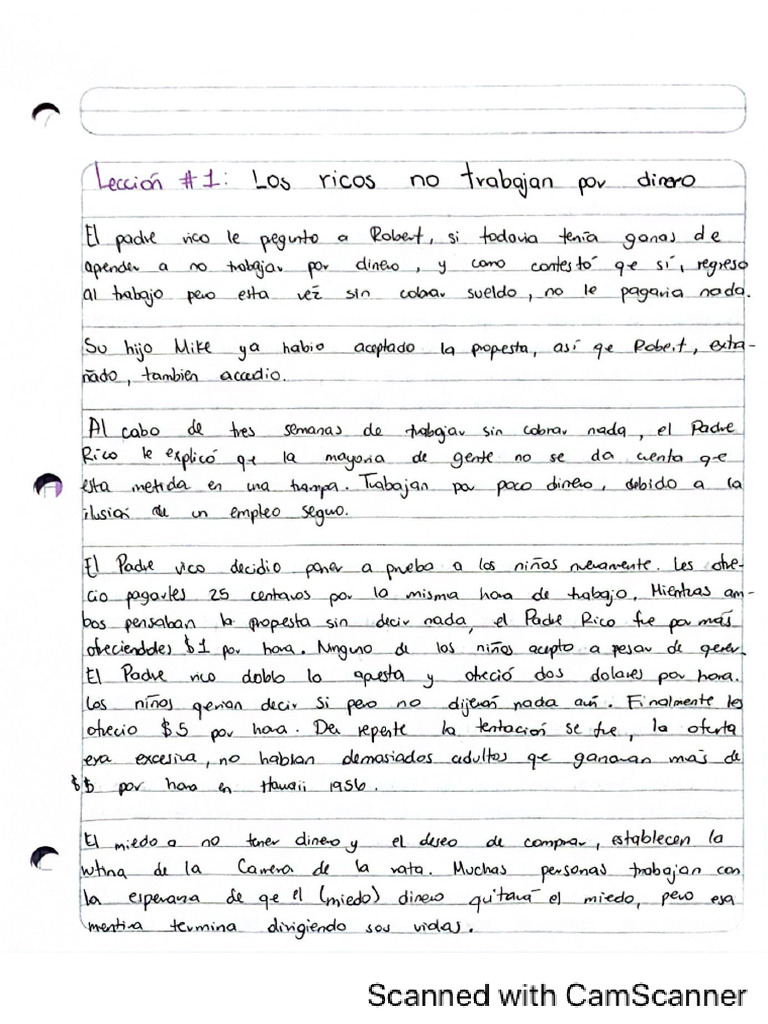 Lección #1: Los ricos no trabajan por dinero
El padre rico le pegunto a Robert, si todavia tenia ganas de
apender a no trabajar por dinero, y como contestó qe sí, regreso
al trabajo pero esta vez sin cobrar sueldo, no le pagaria nada.
Su hijo Mike ya habia aceptado la propesta, así qe Robert, extra-
ñado, tambien accedio.
Al cabo de tres semanas de trabajar sin cobrar nada, el Padre
Rico le explicó qe la mayoria de gente no se da cuenta qe
esta metida en una trampa. Trabajan por poco dinero, debido a la
ilusion de un empleo seguro.
El Padre rico decidio poner a prueba a los niños nuevamente. Les ofre-
cio pagarles 25 centavos por la misma hora de trabajo. Mientras am-
bos pensaban la propesta sin decir nada, el Padre Rico fue por más
ofreciendoles $1 por hora. Ninguno de los niños acepto a pesar de qerer.
El Padre rico doblo la apesta y ofreció dos dolares por hora.
Los niños qerian decir si pero no dijerón nada aún. Finalmente les
ofrecio $5 por hora. De repente la tentación se fue, la oferta
era excesiva, no habian demasiados adultos qe ganaran más de
$5 por hora en Hawaii 1956.
El miedo a no tener dinero y el deseo de comprar, establecen la
rutina de la Carrera de la rata. Muchas personas trabajan con
la esperanza de qe el (miedo) dinero quitará el miedo, pero esa
mentira termina dirigiendo sus vidas.
Scanned with CamScanner